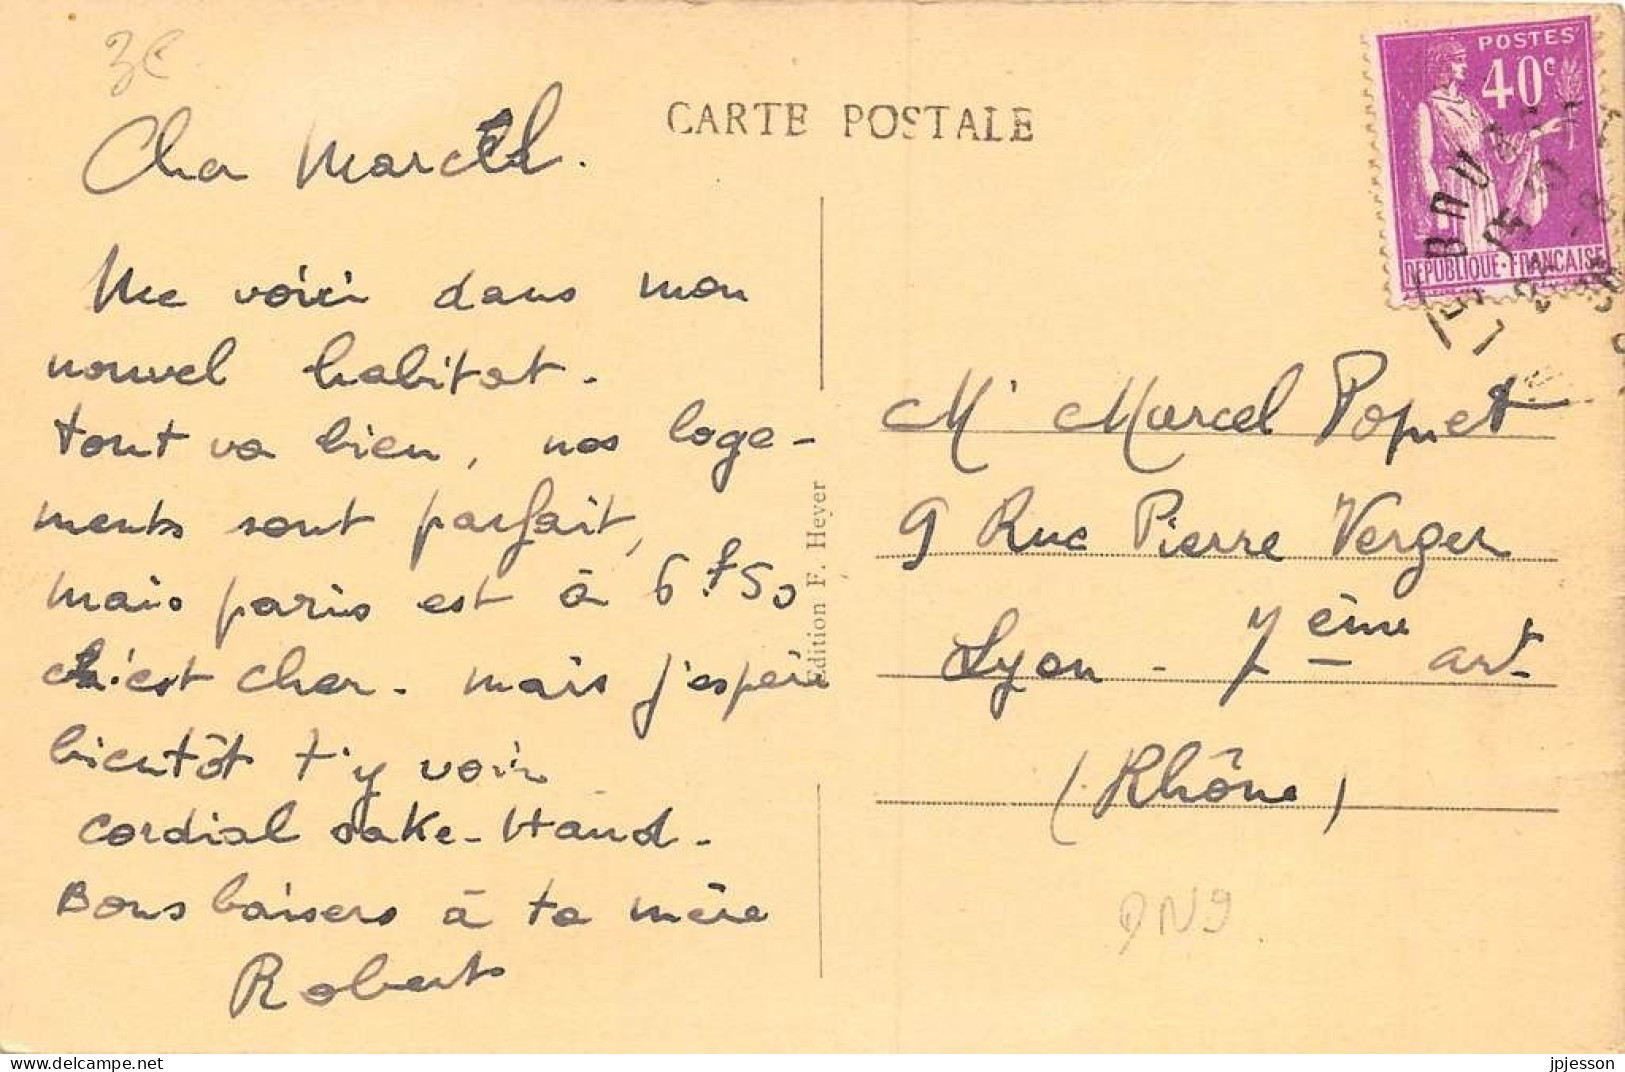 3€
CARTE POSTALE
POSTES
40c
REPUBLIQUE·FRANCAISE
Cher Marcel.
Me voici dans mon
nouvel habitat.
tout va bien, nos loge-
ments sont parfait,
mais paris est à 6f50
c'est cher. mais j'espère
bientôt t'y voir
cordial sake-Hand.
Bons baisers à ta mère
Robert
Edition F. Heyer
Mr Marcel Popnet
9 Rue Pierre Verger
Lyon - 7ème art
(Rhône)
DN9
jpjesson